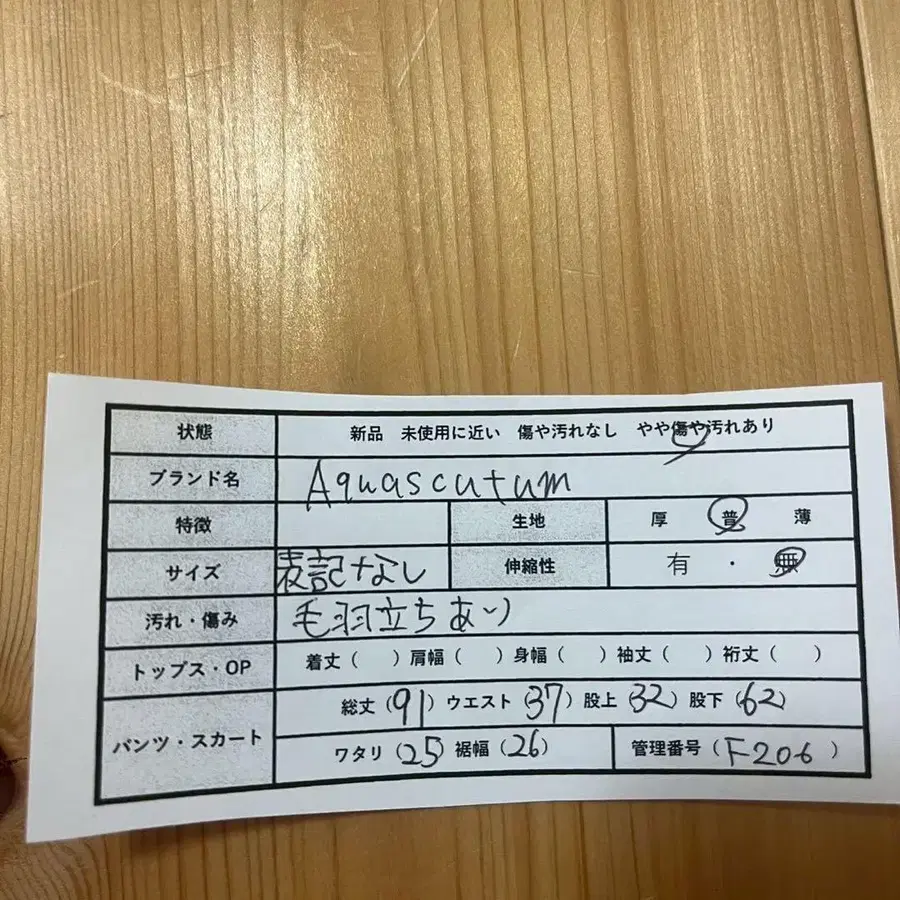 状態 新品 未使用に近い 傷や汚れなし やや傷や汚れあり
ブランド名 Aquascutum
特徴 生地 厚 普 薄
サイズ 表記なし 伸縮性 有 ・ 無
汚れ・傷み 毛羽立ちあり
トップス・OP 着丈 ( ) 肩幅 ( ) 身幅 ( ) 袖丈 ( ) 裄丈 ( )
パンツ・スカート 総丈 (91) ウエスト (37) 股上 (32) 股下 (62)
ワタリ (25) 裾幅 (26) 管理番号 (F206)